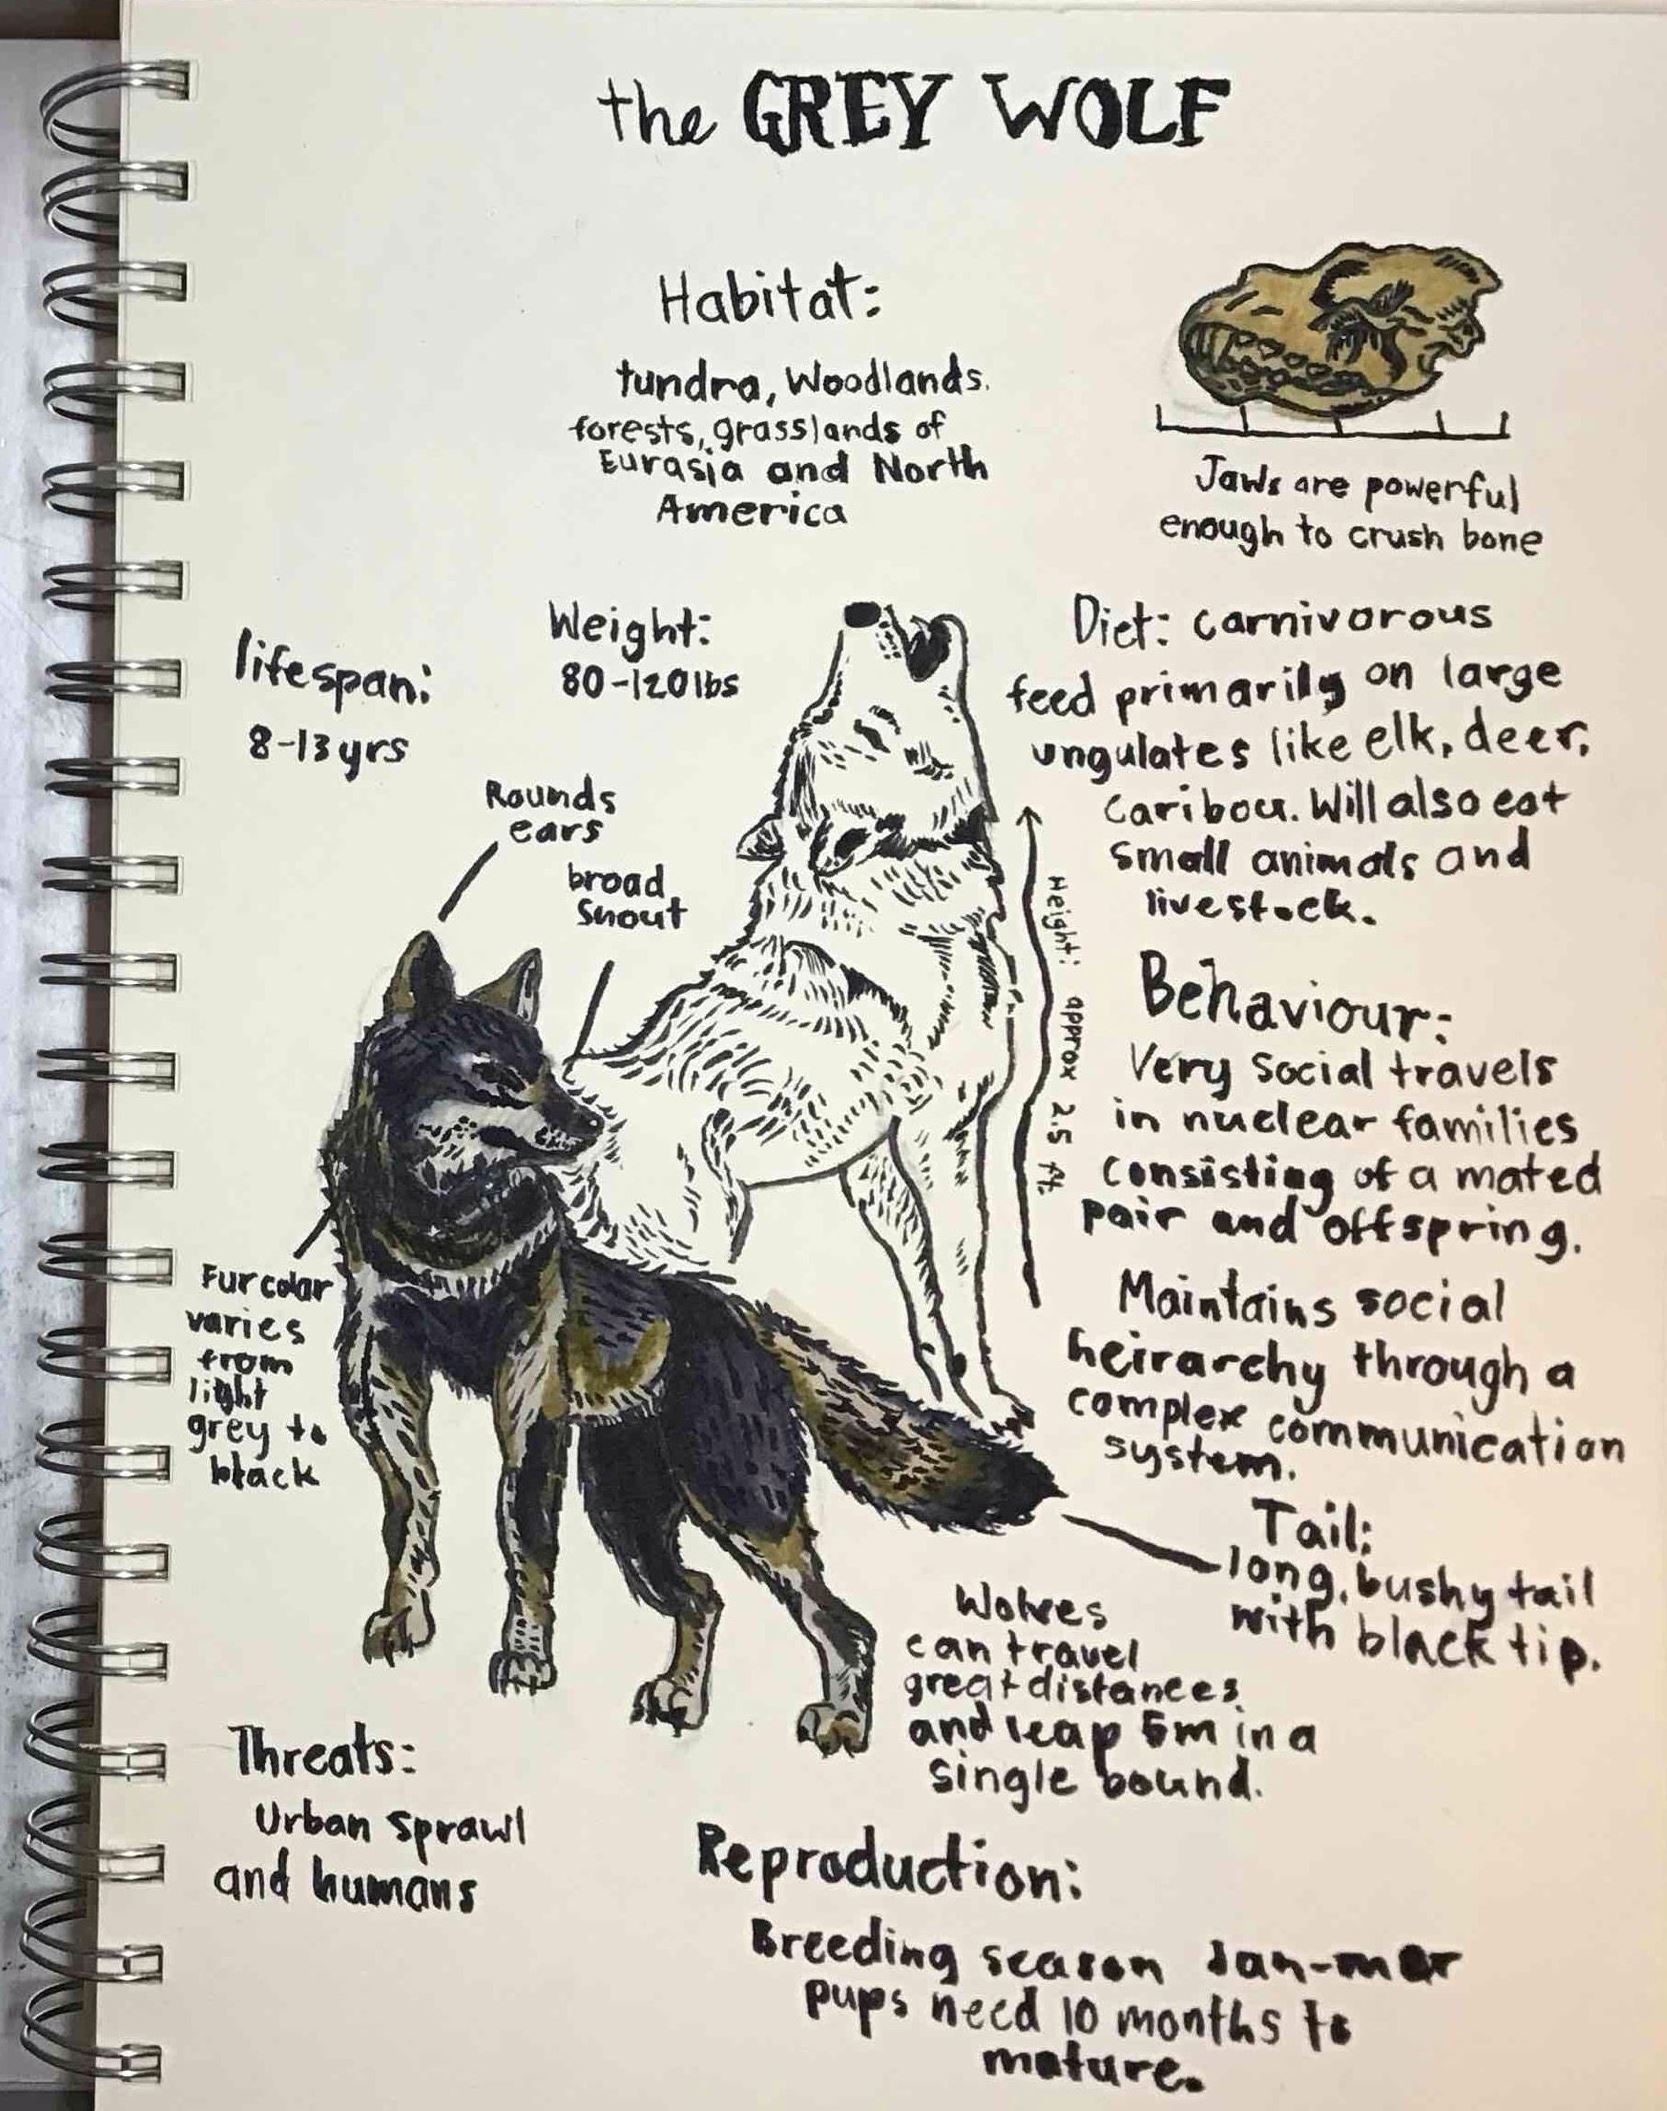 the GREY WOLF
Habitat:
tundra, Woodlands.
forests, grasslands of
Eurasia and North
America
Jaws are powerful
enough to crush bone
lifespan:
8-13 yrs
Weight:
80-120 lbs
Diet: carnivorous
feed primarily on large
ungulates like elk, deer,
caribou. Will also eat
small animals and
livestock.
Rounds
ears
broad
snout
Height: approx 2.5 ft.
Behaviour:
Very social travels
in nuclear families
consisting of a mated
pair and offspring.
Maintains social
heirarchy through a
complex communication
system.
Fur color
varies
from
light
grey to
black
Tail:
long, bushy tail
with black tip.
Wolves
can travel
great distances
and leap 5m in a
single bound.
Threats:
Urban sprawl
and humans
Reproduction:
Breeding season Jan-mar
pups need 10 months to
mature.